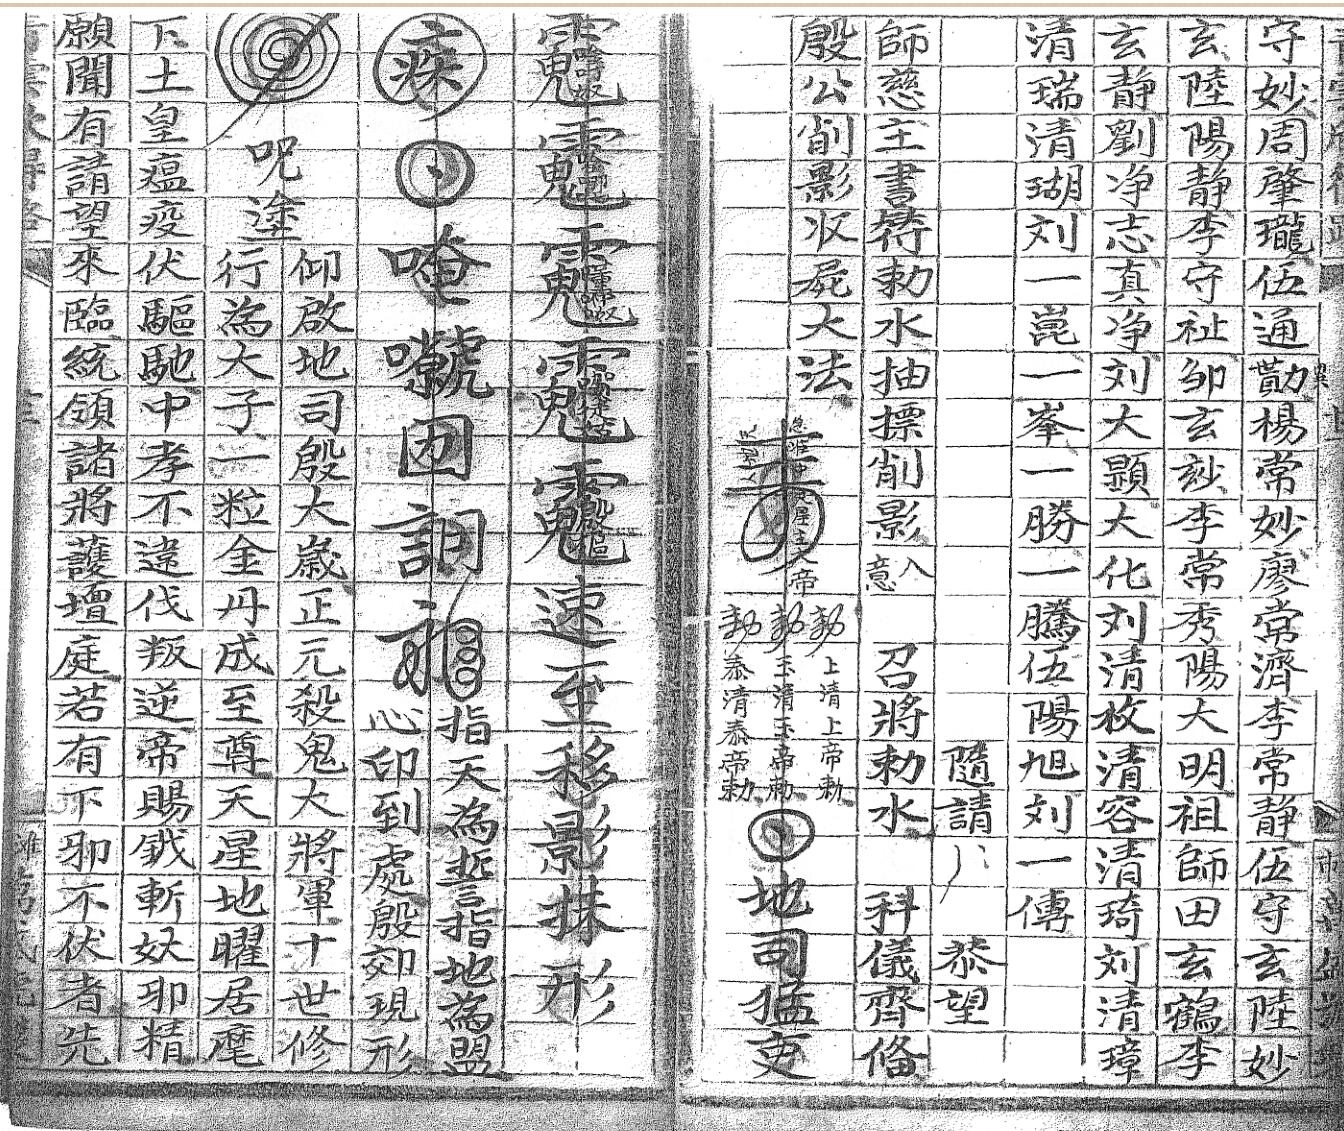 守妙周肇瓏伍通勳楊常妙廖常濟李常靜伍守玄陸妙
玄陸陽靜李守祉邹玄玅李常秀陽大明祖師田玄鶴李
玄靜劉净志真净刘大顯大化刘清枚清容清琦刘清璋
清瑞清瑚刘一崑一峯一勝一騰伍陽旭刘一傳
隨請 恭望
師慈主書符勅水抽摽削影入意 召將勅水 科儀齊俻
殷公削影收屍大法
上清上帝勅
玉清玉帝勅
泰清泰帝勅
地司猛吏
速至移影抹形
指天為誓指地為盟
心印到處殷郊現形
呪塗
仰啟地司殷太歲正元殺鬼大將軍十世修
行為太子一粒金丹成至尊天星地曜居麾
下土皇瘟疫伏驅馳中孝不違伐叛逆帝賜鉞斬妖耶精
願聞有請望來臨統領諸將護壇庭若有不耶不伏者先